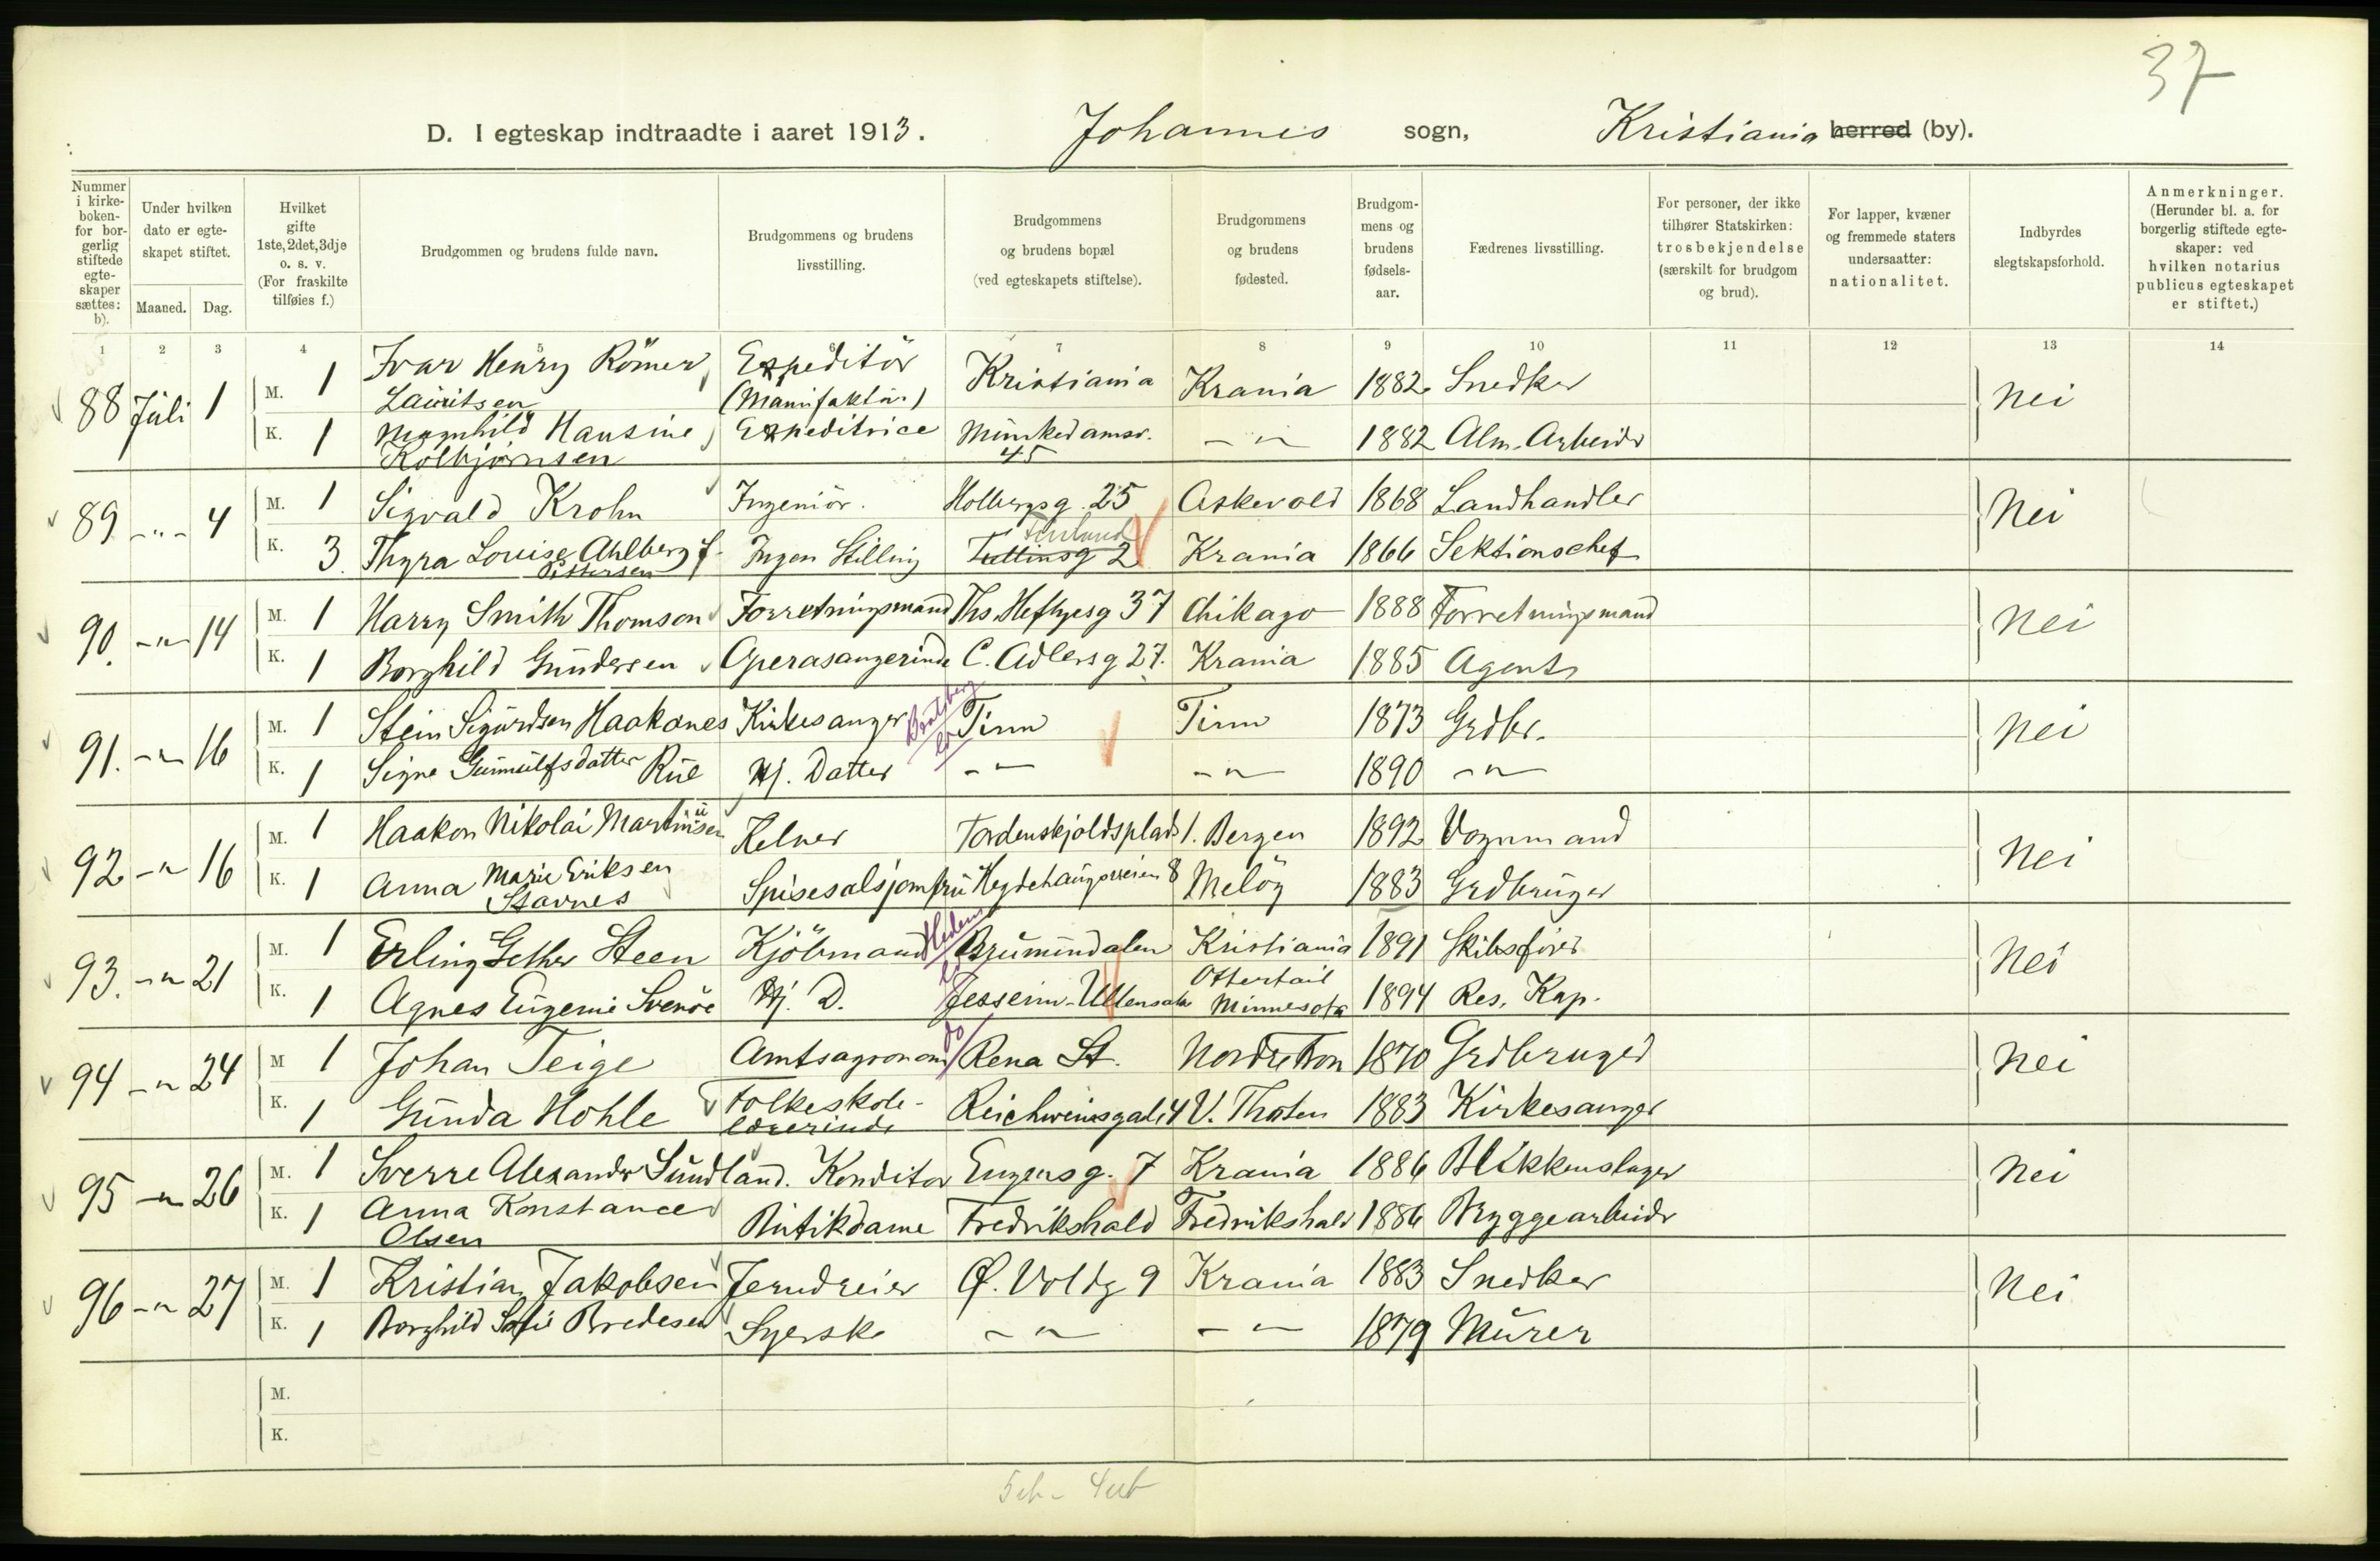 37
D. I egteskap indtraadte i aaret 1913. Johannes sogn, Kristiania herred (by).
Nummer i kirke-boken- for bor-gerlig stiftede egte-skaper sættes: b).
Under hvilken dato er egte-skapet stiftet.
Maaned. Dag.
Hvilket gifte 1ste, 2det, 3dje o. s. v. (For fraskilte tilføies f.)
Brudgommen og brudens fulde navn.
Brudgommens og brudens livsstilling.
Brudgommens og brudens bopæl (ved egteskapets stiftelse).
Brudgommens og brudens fødested.
Brudgom-mens og brudens fødsels-aar.
Fædrenes livsstilling.
For personer, der ikke tilhører Statskirken: trosbekjendelse (særskilt for brudgom og brud).
For lapper, kvæner og fremmede staters undersaatter: nationalitet.
Indbyrdes slegtskapsforhold.
Anmerkninger. (Herunder bl. a. for borgerlig stiftede egte-skaper: ved hvilken notarius publicus egteskapet er stiftet.)
1 2 3 4 5 6 7 8 9 10 11 12 13 14
88 Juli 1 M. 1 Ivar Henry Römer Lauritsen Expeditör (Manufaktur) Kristiania Krania 1882 Snedker Nei
K. 1 Magnhild Hansine Kolbjörnsen Expeditrice Munkedamsv. 45 -"- 1882 Alm. Arbeider
89 -"- 4 M. 1 Sigvald Krohn Ingeniör. Holbergsg. 25 Askevold 1868 Landhandler Nei
K. 3 Thyra Louise Ahlberg f. Pettersen Ingen Stilling Tullinsg 2 Finland Krania 1866 Sektionschef
90. -"- 14 M. 1 Harry Smith Thomson Forretningsmand Ths. Heftyesg 37 Chikago 1888 Forretningsmand Nei
K. 1 Borghild Gundersen Operasangerinde C. Adlersg 27. Krania 1885 Agent
91. -"- 16 M. 1 Stein Sigurdsen Haakanes Kirkesanger Bratsberg Tinn Tinn 1873 Grdbr. Nei
K. 1 Signe Gunnulfsdatter Rue Hj. Datter -"- -"- 1890 -"-
92 -"- 16 M. 1 Haakon Nikolai Martinusen Kelner Tordenskjoldsplads 1. Bergen 1892 Vognmand Nei
K. 1 Anna Marie Eriksen Stavnes Spisesalsjomfru Hegdehaugsveien 8 Melöy 1883 Grdbruger
93. -"- 21 M. 1 Erling Gether Steen Kjöbmand Hedem Brumundalen Kristiania 1891 Skibsförer Nei
K. 1 Agnes Eugenie Svenöe Hj. D. Jesseim-Ullensaker Ottertail Minnesota 1894 Res. Kap.
94 -"- 24 M 1 Johan Teige Amtsagronom do Rena St. Nordre Fron 1870 Grdbruger Nei
K. 1 Gunda Hohle Folkeskole-lærerinde Reichweinsgade 4 V. Thoten 1883 Kirkesanger
95 -"- 26 M. 1 Sverre Alexander Sundland. Konditor Eugensg. 7 Krania 1886 Blikkenslager Nei
K. 1 Anna Konstance Olsen Butikdame Fredrikshald Fredrikshald 1886 Bryggearbeider
96 -"- 27 M. 1 Kristian Jakobsen Jerndreier Ø. Voldg 9 Krania 1883 Snedker Nei
K. 1 Borghild Sofie Bredesen Syerske -"- -"- 1879 Murer
M.
K.